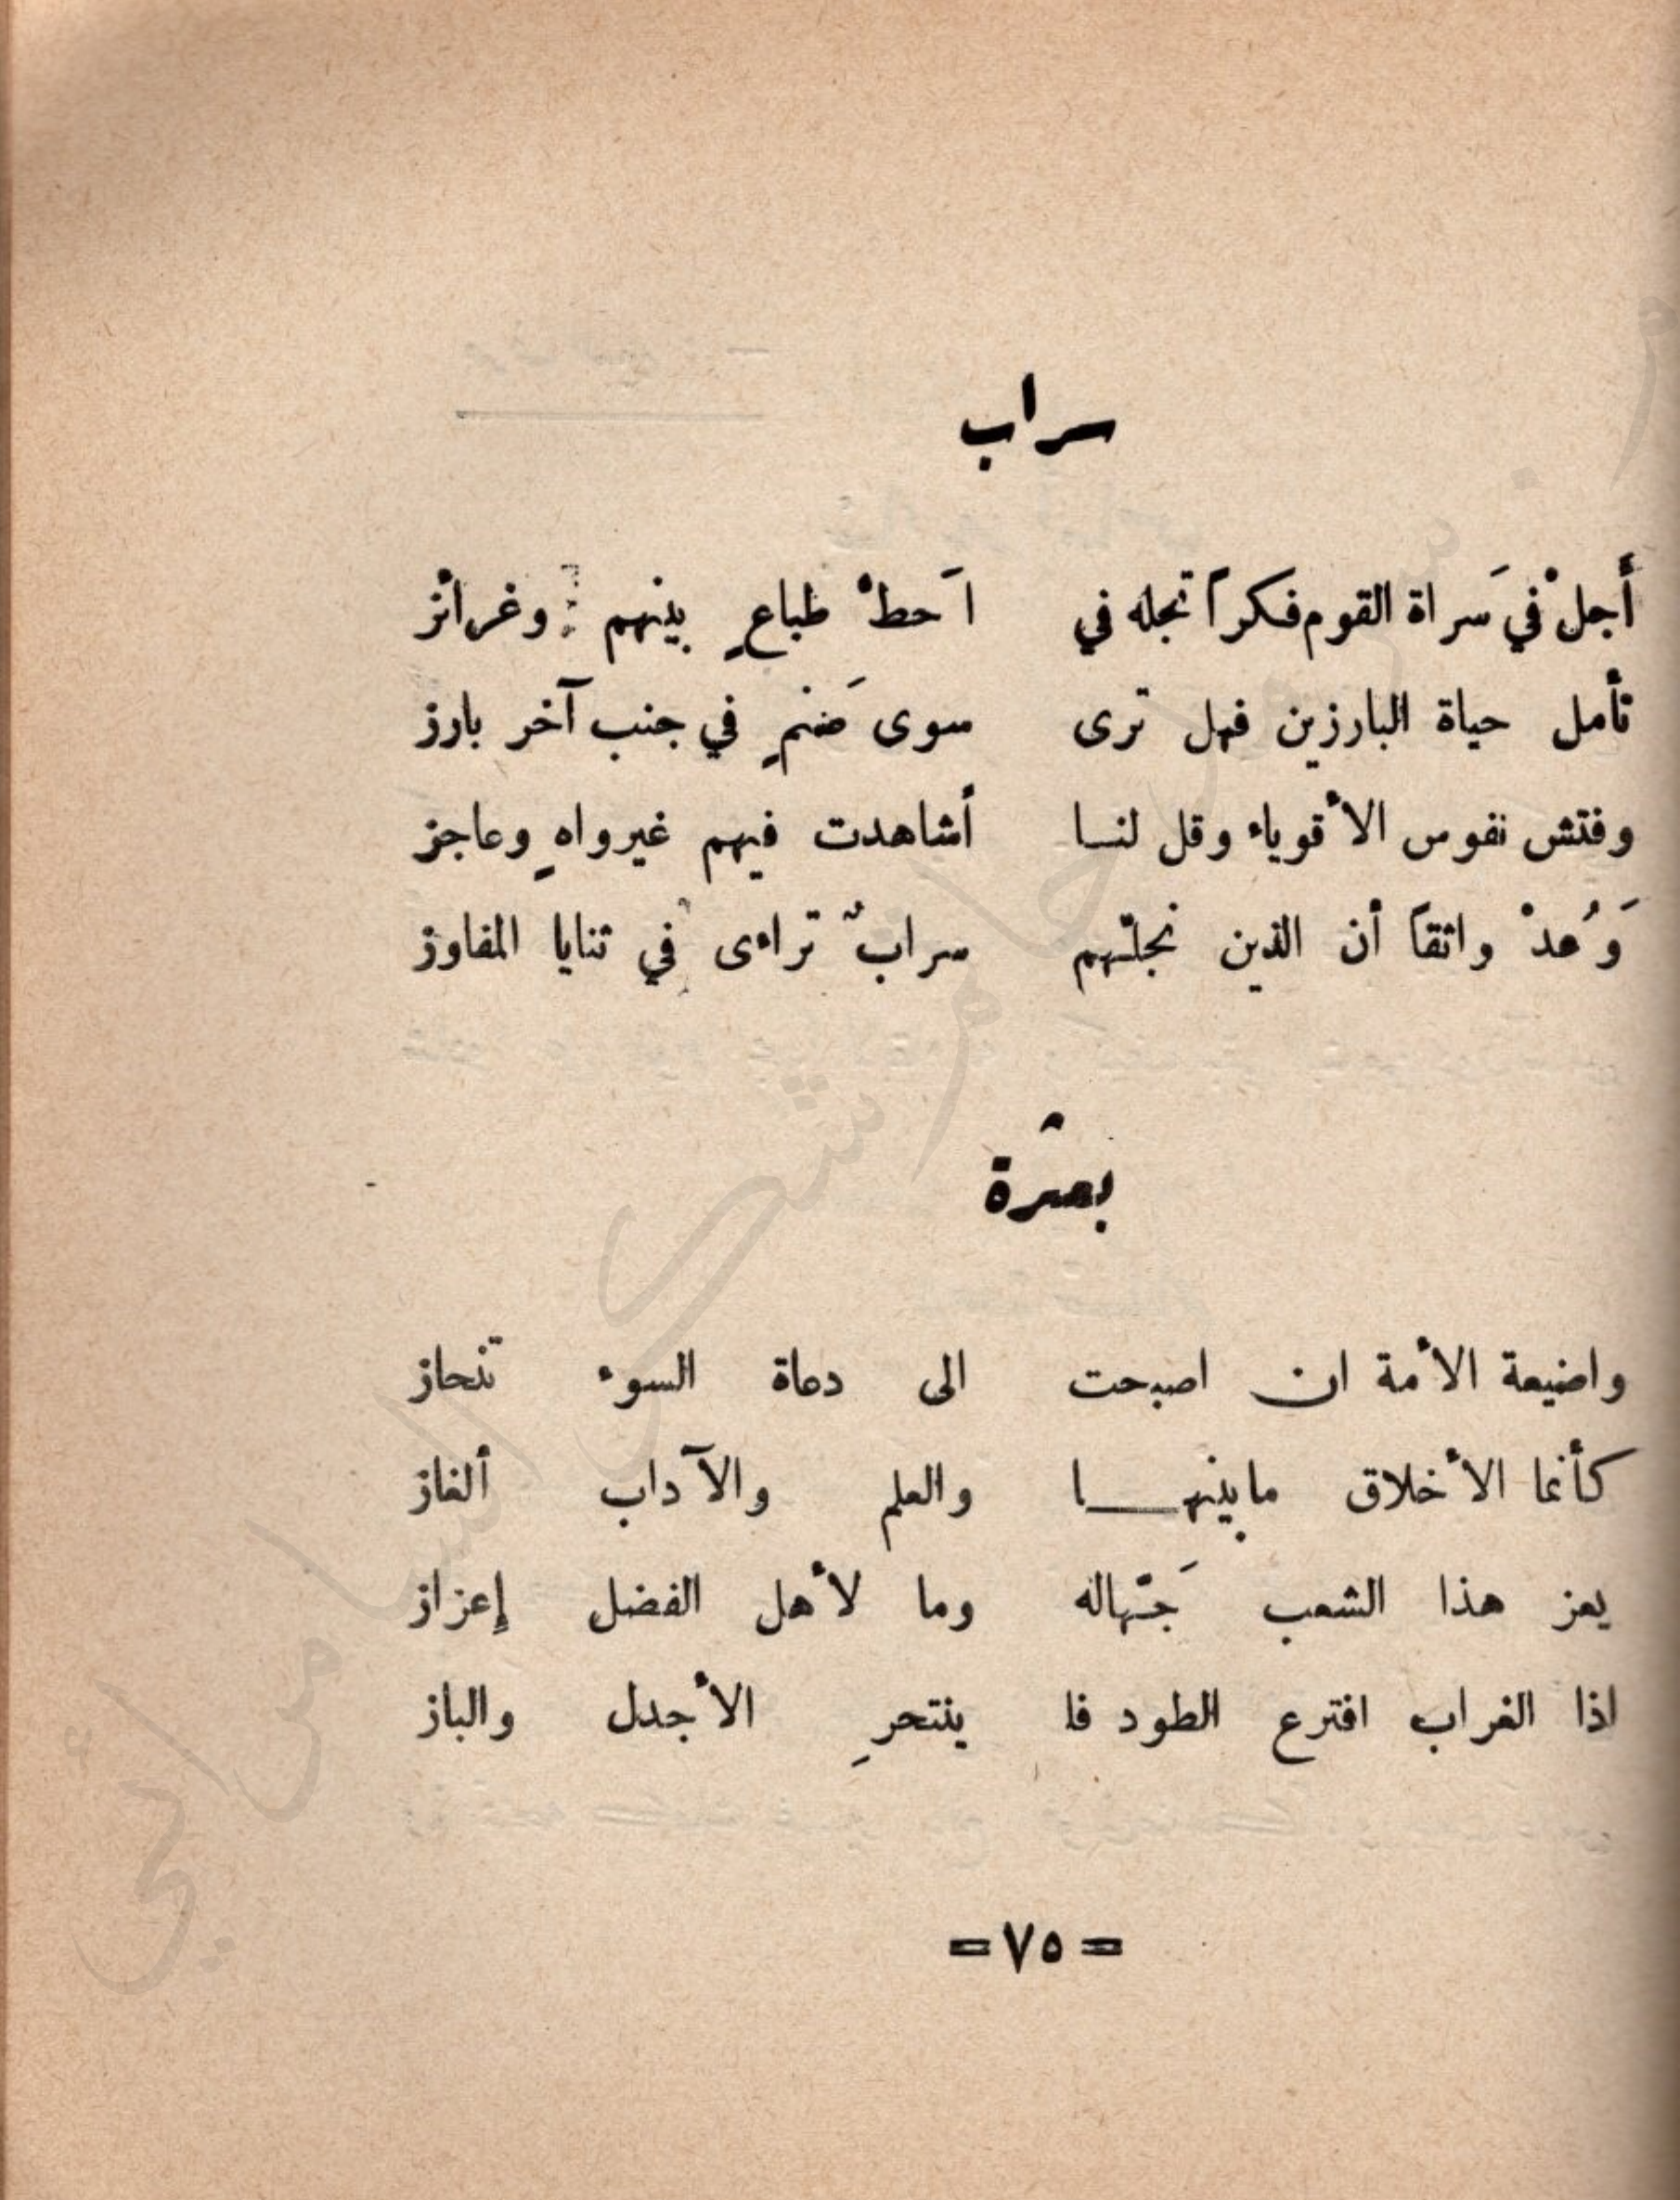 سراب
أجلْ في سَراة القوم فكراً تجله في احَطْ طباعٍ بينهم وغرائز
تأمل حياة البارزين فهل ترى سوى صَنمٍ في جنب آخر بارز
وفتش نفوس الأقوياء وقل لنا أشاهدت فيهم غير واهٍ وعاجز
وَعُدْ واثقاً أن الذين تجلّهم سرابٌ تراءى في ثنايا المفاوز
واضيعة الأمة ان اصبحت الى دعاة السوء تنحاز
كأنما الأخلاق ما بينها والعلم والآداب ألغاز
يعز هذا الشعب جَهّاله وما لأهل الفضل إعزاز
اذا الغراب افترع الطود فا ينتحرِ الأجدل والباز
= ٧٥ =